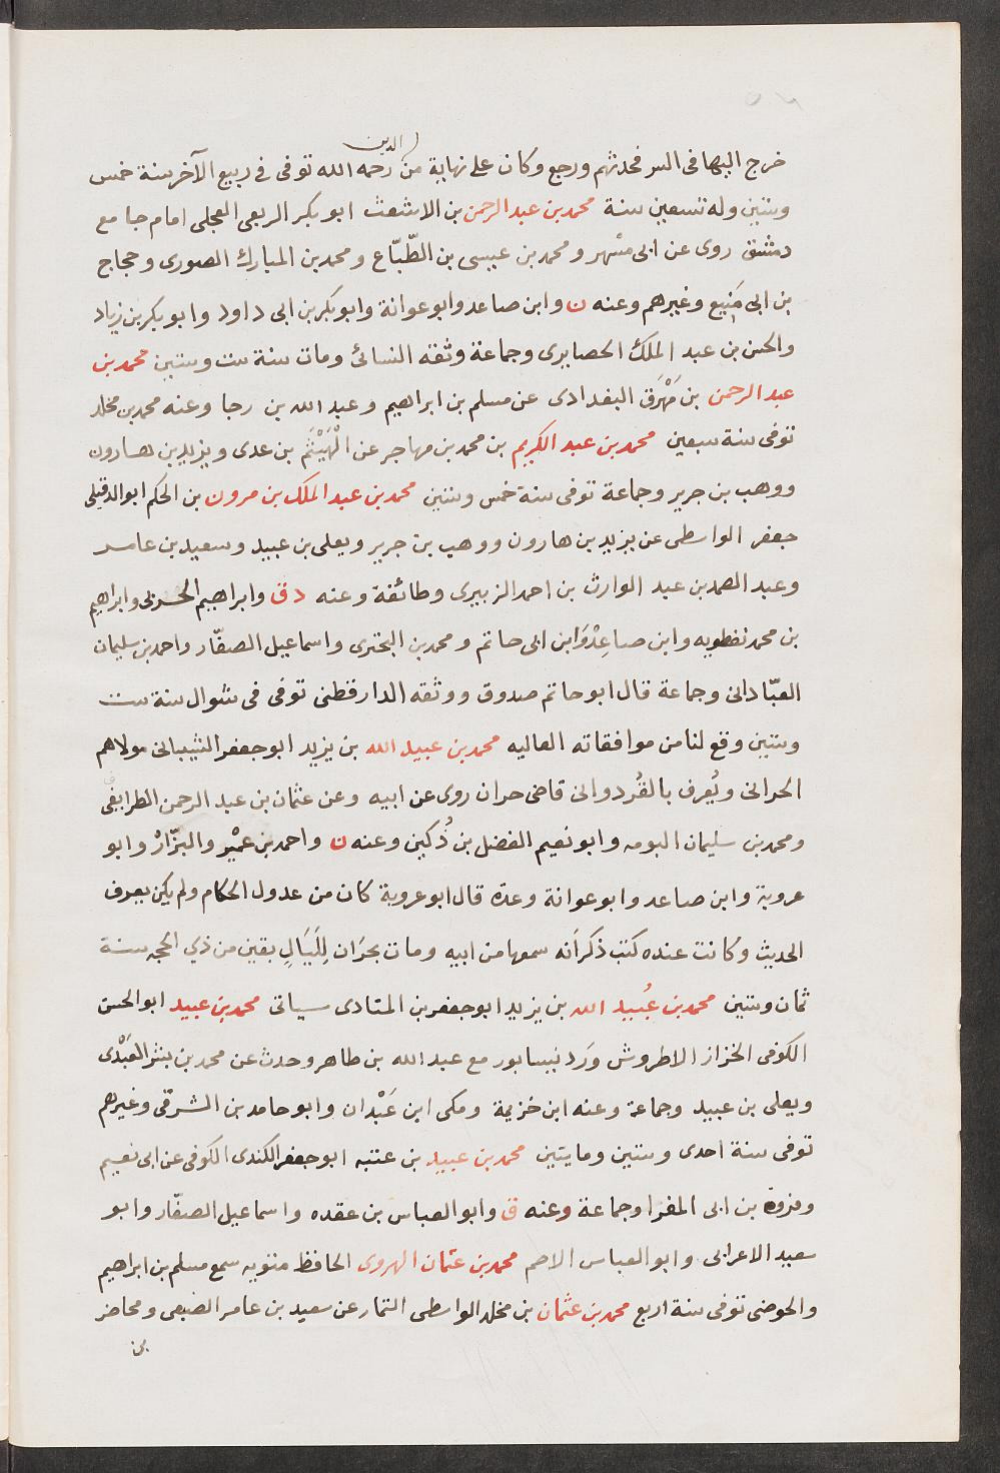 خرج اليها فى السر فحدثهم ورجع وكان على نهاية من الدين رحمه الله توفى فى ربيع الآخر سنة خمس
وستين وله تسعين سنة محمد بن عبد الرحمن بن الاشعث ابو بكر الربعى العجلى امام جامع
دمشق روى عن ابى مسهر ومحمد بن عيسى بن الطّبّاع ومحمد بن المبارك الصورى وحجاج
بن ابى مَنِيع وغيرهم وعنه ن وابن صاعد وابو عوانة وابو بكر بن ابى داود وابو بكر بن زياد
والحسن بن عبد الملك الحصايرى وجماعة وثقه النسائى ومات سنة ست وستين محمد بن
عبد الرحمن بن مَهْرَق البغدادى عن مسلم بن ابراهيم وعبد الله بن رجا وعنه محمد بن مخلد
توفى سنة سبعين محمد بن عبد الكريم بن محمد بن مهاجر عن الْهَيْثَم بن عدى ويزيد بن هارون
ووهب بن جرير وجماعة توفى سنة خمس وستين محمد بن عبد الملك بن مرون بن الحكم ابو الدقيقى
جعفر الواسطى عن يزيد بن هارون ووهب بن جرير ويعلى بن عبيد وسعيد بن عامر
وعبد الصمد بن عبد الوارث بن احمد الزبيرى وطائفة وعنه د ق وابراهيم الحربى وابراهيم
بن محمد نفطويه وابن صاعِدْ وَابن ابى حاتم ومحمد بن البخترى واسماعيل الصفّار واحمد بن سليمان
العبّادانى وجماعة قال ابو حاتم صدوق ووثقه الدارقطنى توفى فى شوال سنة ست
وستين وقع لنا من موافقاته العاليه محمد بن عبيد الله بن يزيد ابو جعفر الشيبانى مولاهم
الحرانى ويُعرف بالقُردوانى قاضى حران روى عن ابيه وعن عثمان بن عبد الرحمن الطرايفى
ومحمد بن سليمان البومه وابو نعيم الفضل بن دُكين وعنه ن واحمد بن عميْر والبزّارْ وابو
عروبة وابن صاعد وابو عوانة وعدة قال ابو عروبة كان من عدول الحكام ولم يكن يعرف
الحديث وكانت عنده كتب ذكر اَنه سمعها من ابيه ومات بحرَان لِلَيَالٍ بقين من ذي الحجه سنة
ثمان وستين محمد بن عُبيد الله بن يزيد ابو جعفر بن المنادى سياتى محمد بن عبيد ابو الحسن
الكوفى الخزاز الاطروش وَرَد نيسابور مع عبد الله بن طاهر وحدث عن محمد بن بشر العَبْدى
ويعلى بن عبيد وجماعة وعنه ابن خزيمة ومكى ابن عَبْدان وابو حامد بن الشرقى وغيرهم
توفى سنة احدى وستين ومايتين محمد بن عبيد بن عتبه ابو جعفر الكندى الكوفى عن ابى نعيم
وفروة بن ابى المغرا وجماعة وعنه ق وابو العباس بن عقده واسماعيل الصفّار وابو
سعيد الاعرابى وابو العباس الاصم محمد بن عثمان الهروى الحافظ متويه سمع مسلم بن ابراهيم
والحوضى توفى سنة اربع محمد بن عثمان بن مخلد الواسطى التمار عن سعيد بن عامر الضبعى ومحاضر
بن